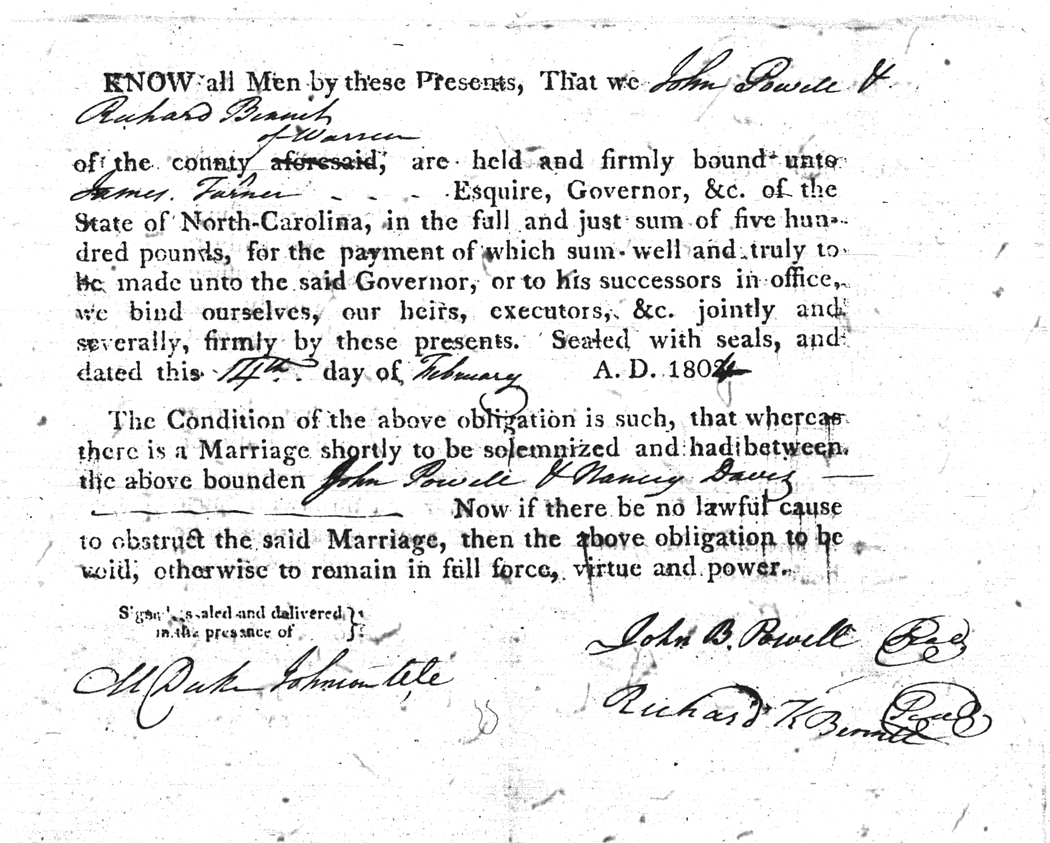 KNOW all Men by these Presents, That we John Powell &
Richard Bennit
of Warren
of the county aforesaid, are held and firmly bound unto
James Turner - - - Esquire, Governor, &c. of the
State of North-Carolina, in the full and just sum of five hun-
dred pounds, for the payment of which sum well and truly to
be made unto the said Governor, or to his successors in office,
we bind ourselves, our heirs, executors, &c. jointly and
severally, firmly by these presents. Sealed with seals, and
dated this 14th. day of February A. D. 1804
The Condition of the above obligation is such, that whereas
there is a Marriage shortly to be solemnized and had between
the above bounden John Powell & Nancy Davis
Now if there be no lawful cause
to obstruct the said Marriage, then the above obligation to be
void, otherwise to remain in full force, virtue and power.
Signed sealed and delivered }
in the presance of
John B. Powell Seal
M Duke Johnson
Richard K Bennett Seal